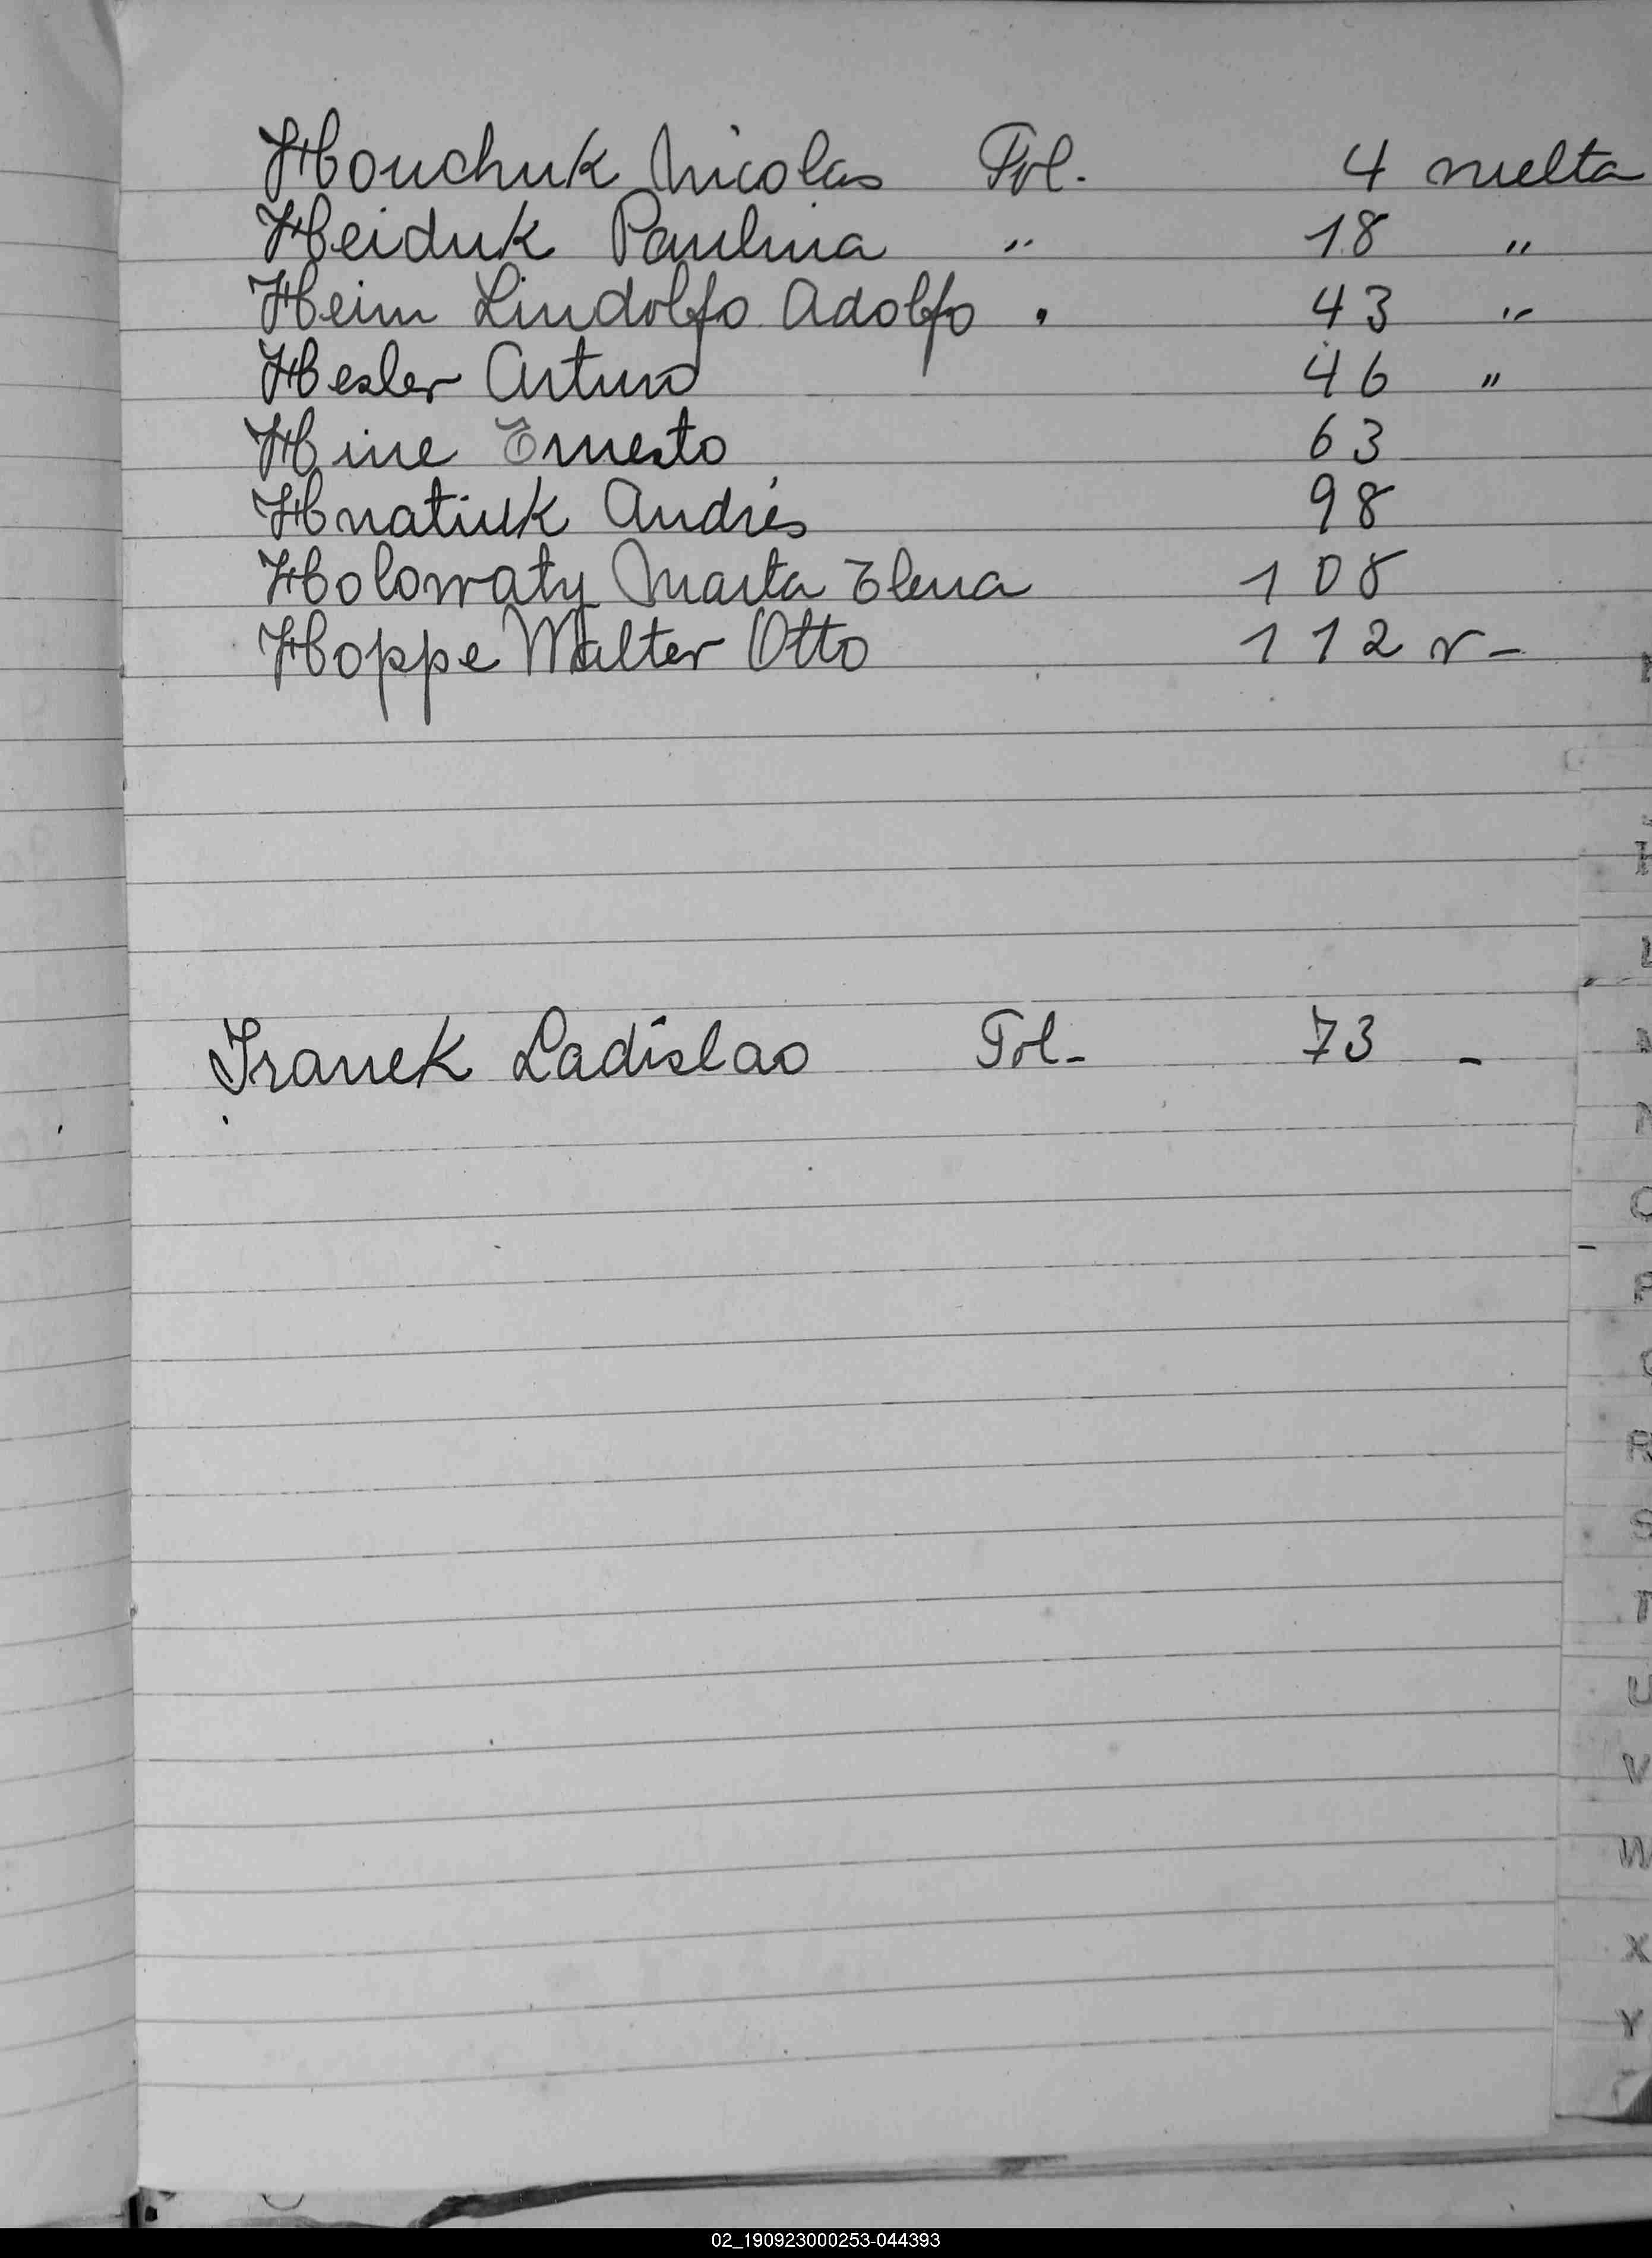 Houchuk Nicolas Fol. 4 vuelta
Heiduk Paulina " 18 "
Heim Lindolfo Adolfo . 43 "
Hesler Arturo 46 "
Hine Ernesto 63
Hnatiuk Andrés 98
Holowaty Marta Elena 108
Hoppe Walter Otto 112 v-
Iranek Ladislao Fol- 73 -
L
N
O
P
Q
R
S
T
U
V
W
X
Y
02_190923000253-044393